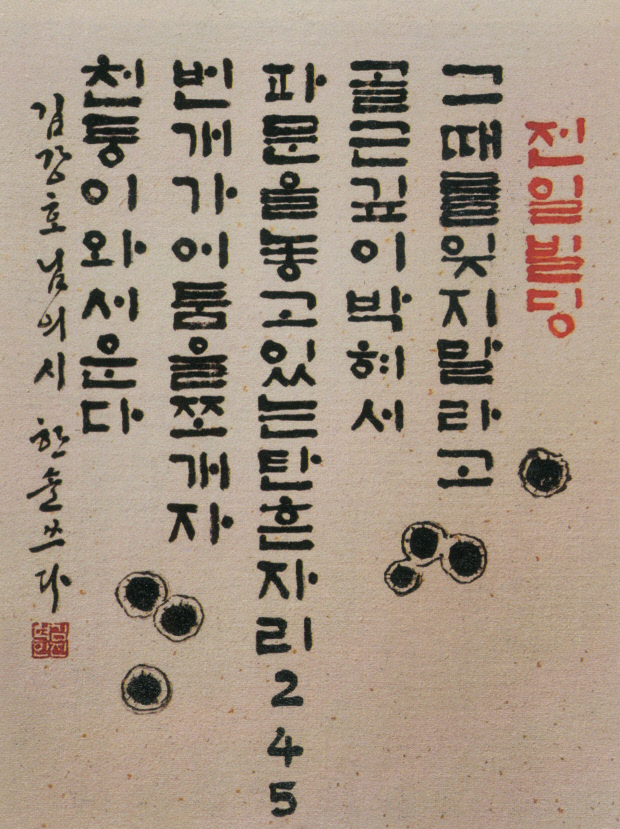 전일빌딩
그때를잊지말라고
골근깊이박혀서
파문을놓고있는탄흔자리245
번개가어둠을쪼개자
천둥이와서운다
김강호님의시 한솔쓰다